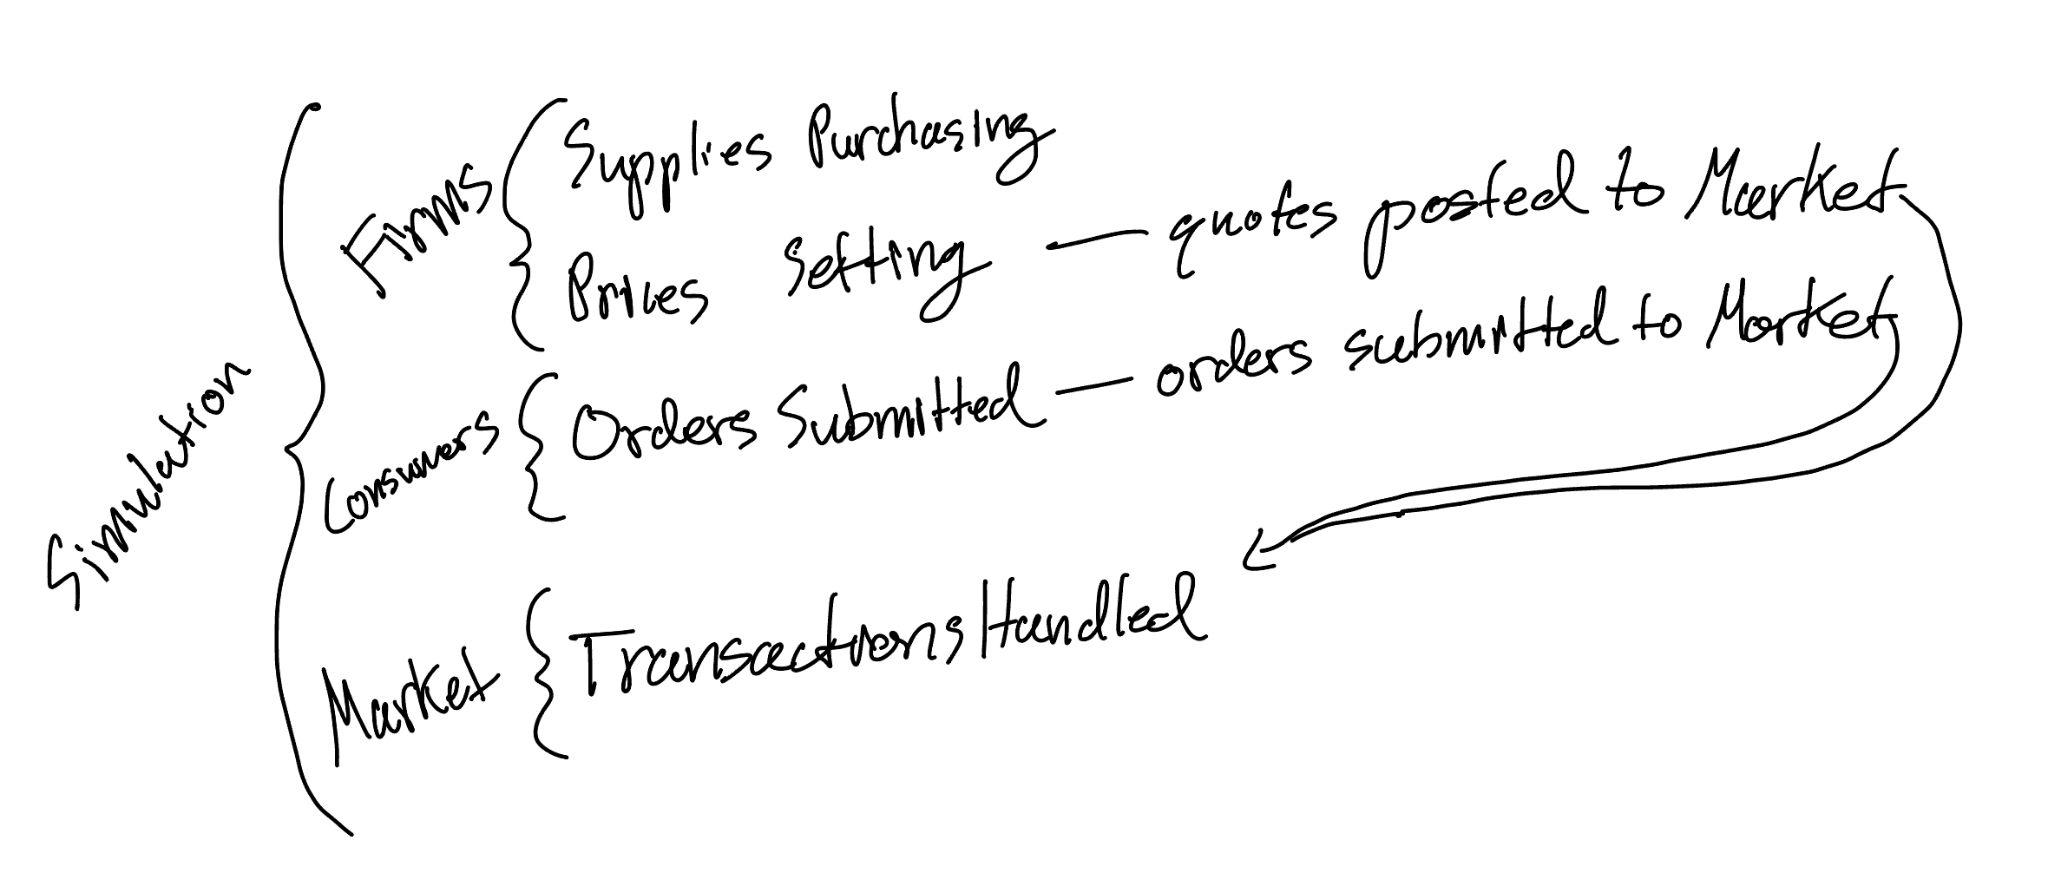 Simulation
Firms
Supplies Purchasing
Prices Setting — quotes posted to Market
Consumers
Orders Submitted — orders submitted to Market
Market
Transactions Handled